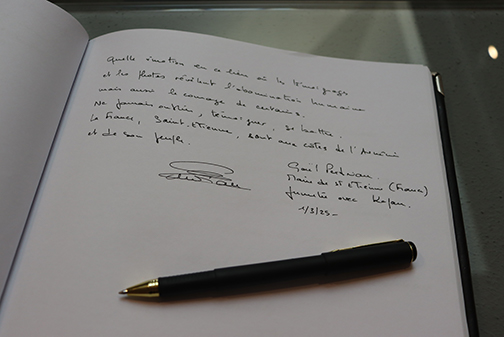 Quelle émotion en ce lieu où les témoignages
et les photos révèlent l'abomination humaine
mais aussi le courage de certains.
Ne jamais oublier, témoigner, se battre.
La France, Saint-Etienne, sont aux côtés de l'Arménie
et de son peuple.
Gaël Perdriau
Maire de St Etienne (France)
jumelée avec Kapan.
1/3/25-